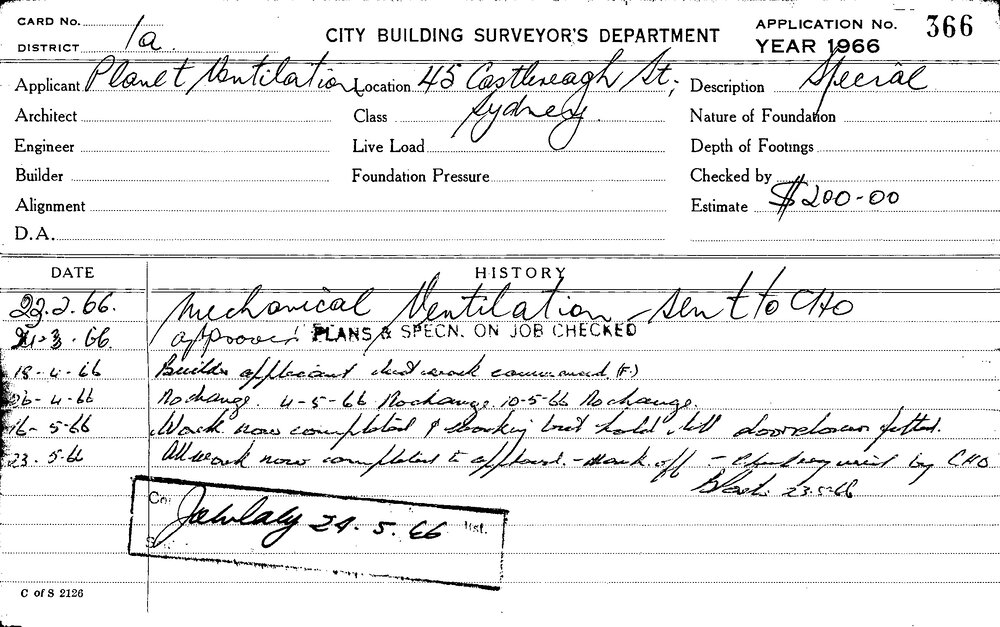 CARD No.
DISTRICT 1a.
CITY BUILDING SURVEYOR'S DEPARTMENT
APPLICATION No. 366
YEAR 1966
Applicant Planet Ventilation Location 45 Castlereagh St; Description Special
Architect Class Sydney. Nature of Foundation
Engineer Live Load Depth of Footings
Builder Foundation Pressure Checked by
Alignment Estimate $200-00
D.A.
DATE HISTORY
22.2.66. Mechanical Ventilation - sent to CHO
3.66. approved PLANS & SPECN. ON JOB CHECKED
18-4-66 Builder applicant duct work commenced (F.)
26-4-66 No change. 4-5-66 No change. 10-5-66 No change.
16-5-66 Work now completed & working but hold till fitted.
23.5.66 All work now completed to approval. - Mark off - by CHO
23-5-66
Co:
24.5.66 list.
S
C of S 2126